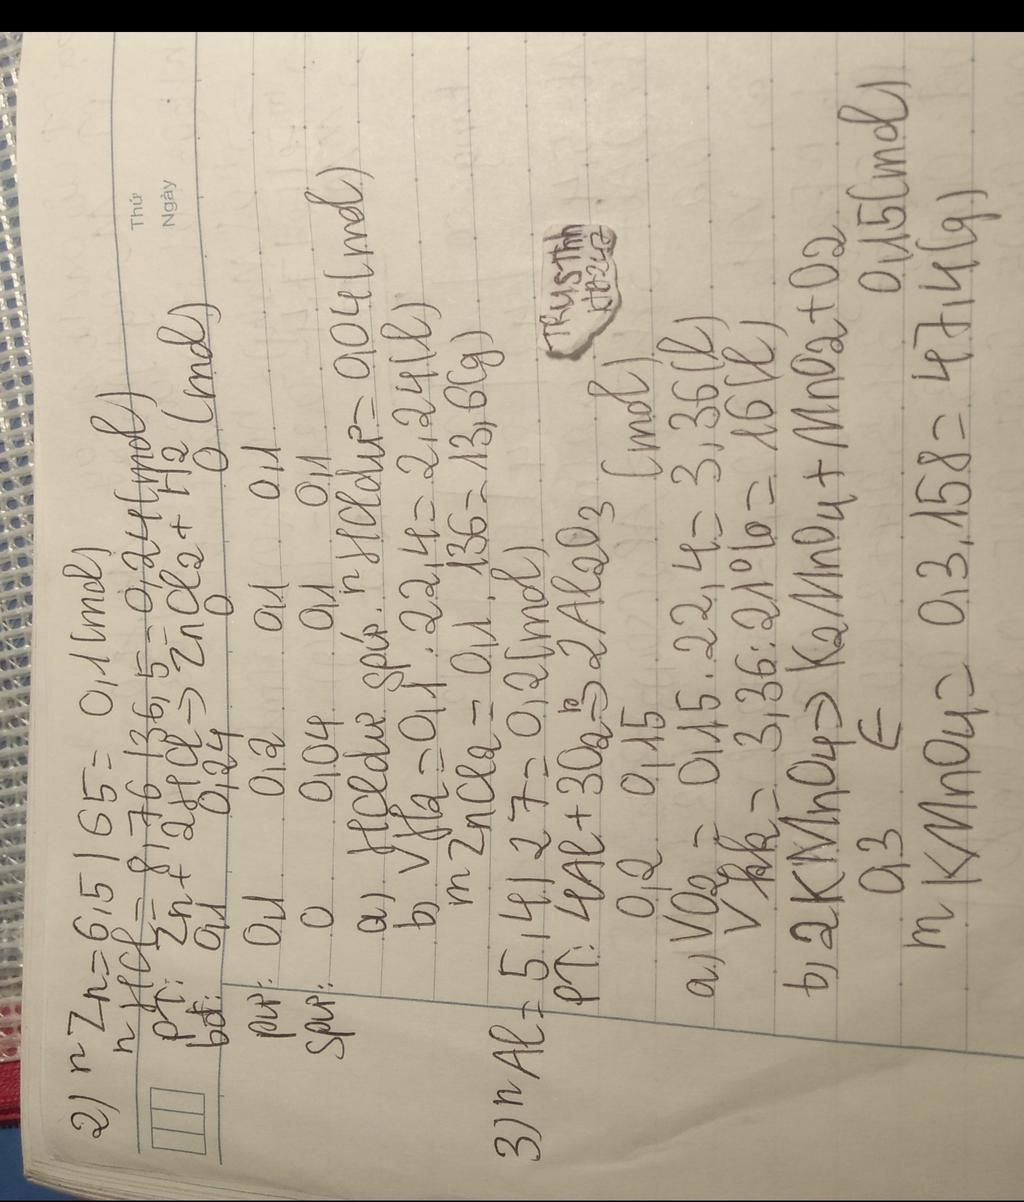 Thứ
Ngày
2) nZn = 6,5 / 65 = 0,1 (mol)
nHCl = 8,76 / 36,5 = 0,24 (mol)
PT: Zn + 2HCl => ZnCl2 + H2
bđ: 0,1 0,24 0 0 (mol)
pư: 0,1 0,2 0,1 0,1
spư: 0 0,04 0,1 0,1
a) HCl dư spư. nHCl dư = 0,04 (mol)
b) VH2 = 0,1 . 22,4 = 2,24 (l)
mZnCl2 = 0,1 . 136 = 13,6 (g)
3) nAl = 5,4 / 27 = 0,2 (mol)
PT: 4Al + 3O2 => 2Al2O3
0,2 0,15 (mol)
TRYSThh
HB247
a) VO2 = 0,15 . 22,4 = 3,36 (l)
Vkk = 3,36 : 21% = 16 (l)
b, 2KMnO4 => K2MnO4 + MnO2 + O2
0,3 <= 0,15 (mol)
mKMnO4 = 0,3 . 158 = 47,4 (g)